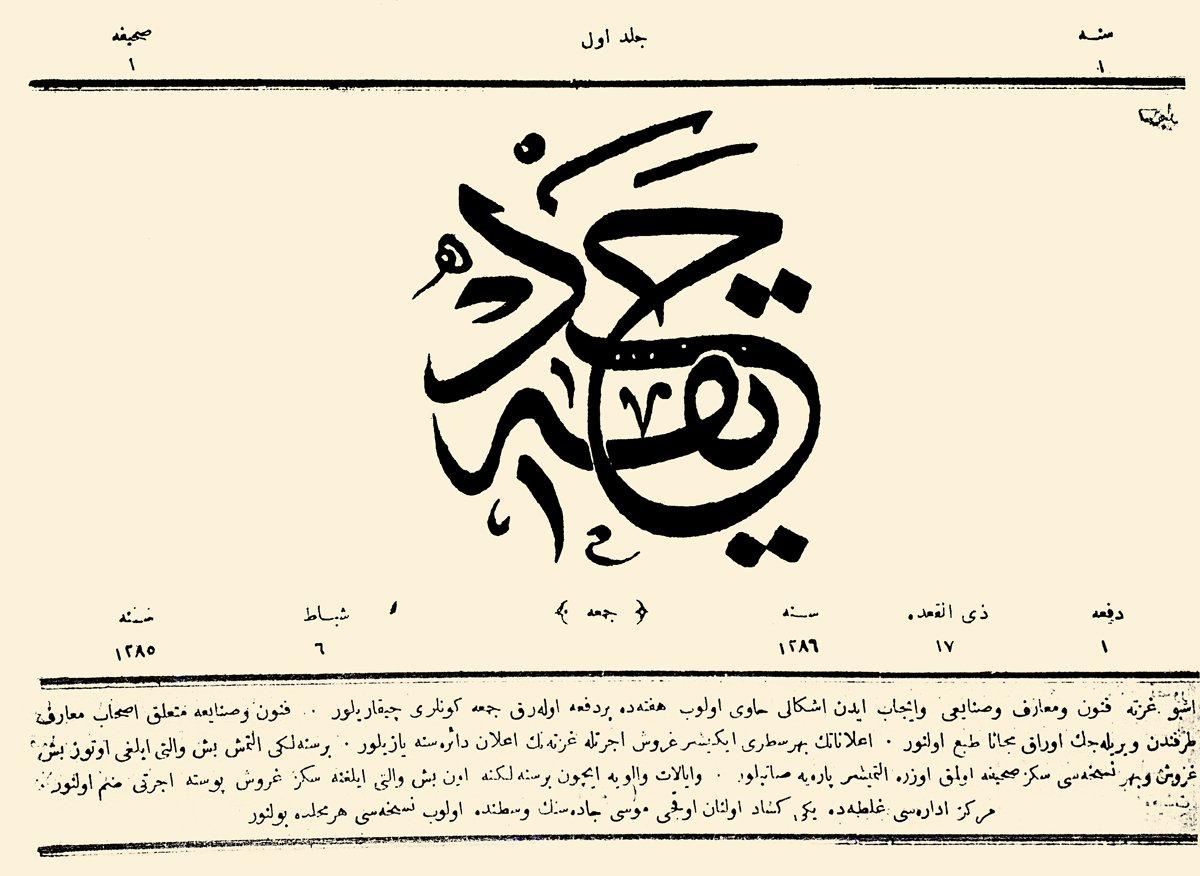 سنه جلد اول صحیفه
١ ١
حدیقه
دفعه ذی القعده سنه ﴿ جمعه ﴾ شباط سنه
١ ١٧ ١٢٨٦ ٦ ١٢٨٥
اشبو غزته فنون ومعارف وصنایعی وایجاب ایدن اشکالی حاوی اولوب هفته‌ده بردفعه اوله‌رق جمعه کونلری چیقاریلور ٠٠ فنون وصنایعه متعلق اصحاب معارف
طرفندن ویریله‌جك اوراق مجانا طبع اولنور ٠ اعلاناتك بهرسطری ایکیشر غروش اجرتله غزته‌نك اعلان دائره‌سنه یازیلور ٠ برسنه‌لکی التمش بش والتی ایلغی اوتوز بش
غروش وبهر نسخه‌سی سکز صحیفه اولمق اوزره التمیشر پاره‌یه صاتیلور ٠ وایالات والویه ایچون برسنه‌لکنه اون بش والتی ایلغنه سکز غروش پوسته اجرتی ضم اولنور
مرکز اداره‌سی غلطه‌ده یکی کشاد اولنان اوقجی موسی جاده‌سنك وسطنده اولوب نسخه‌سی هر محلده بولنور